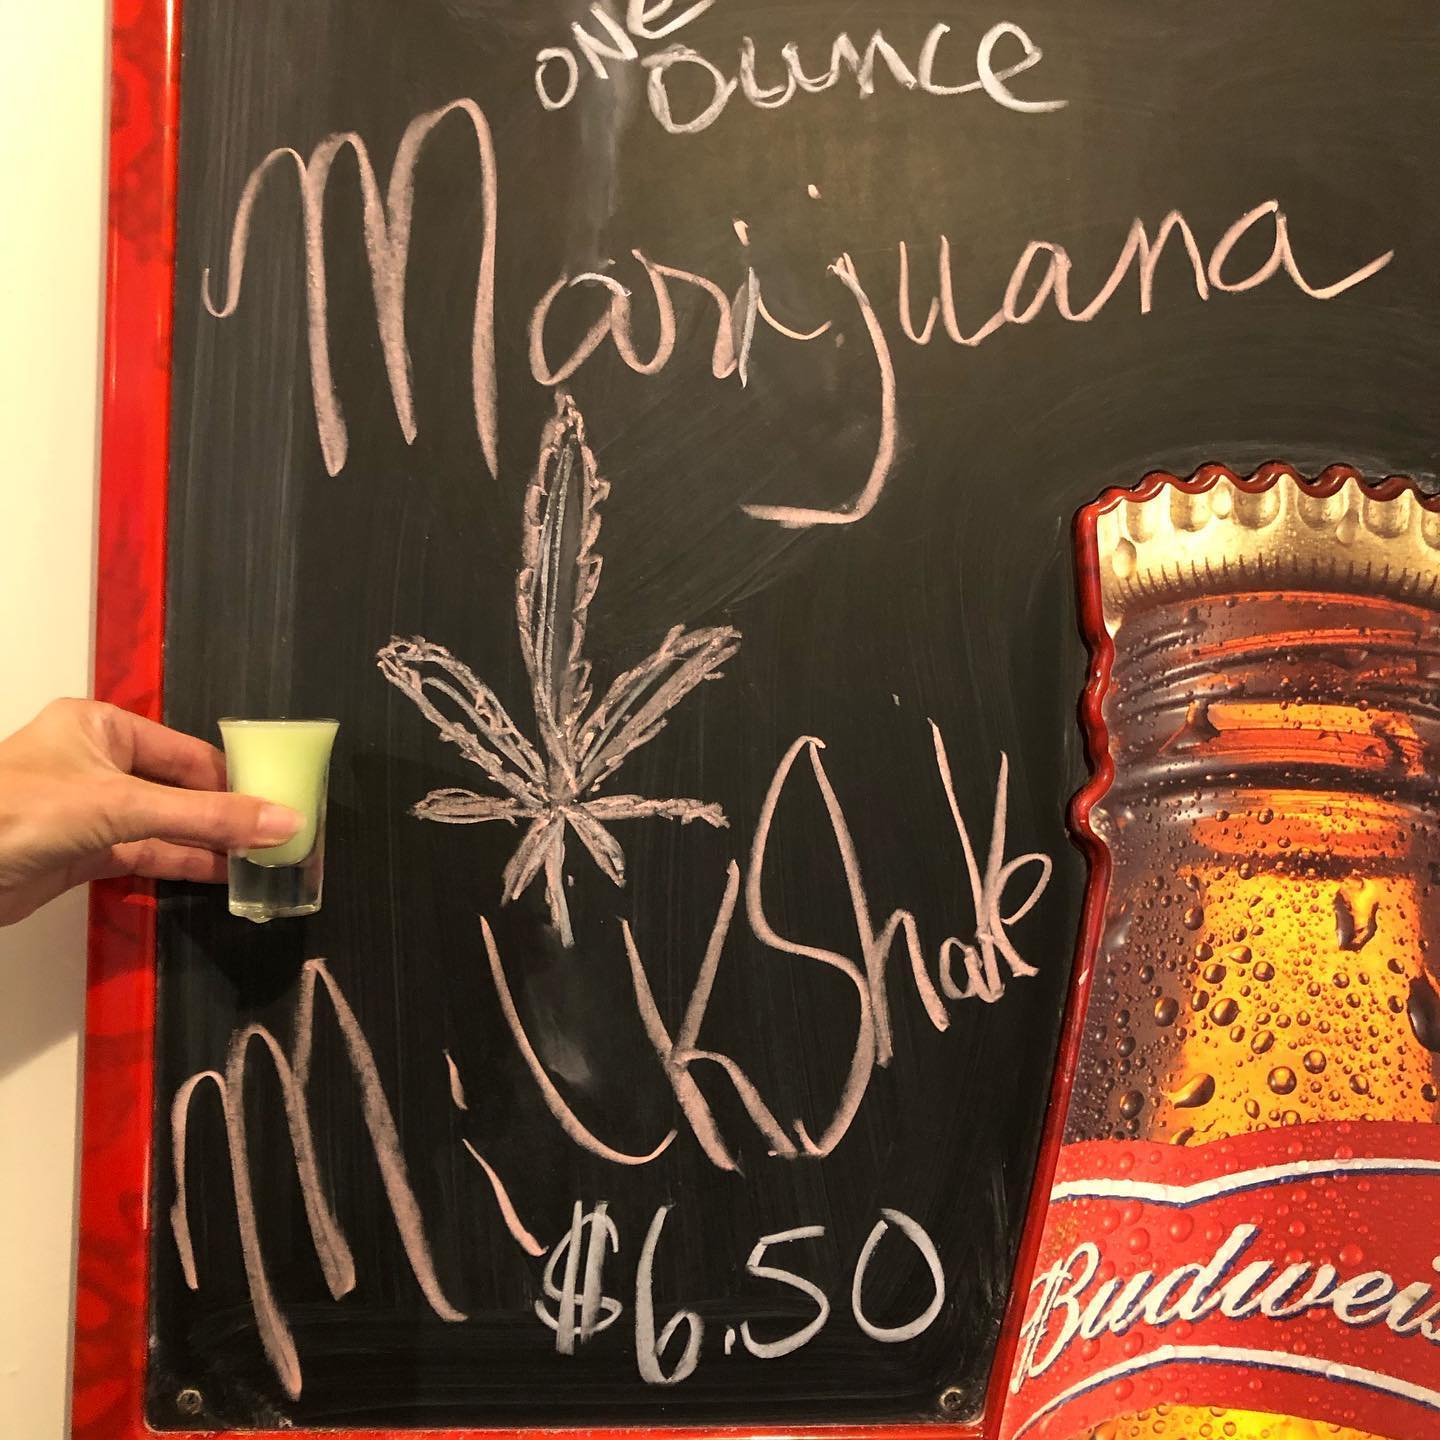 ONE
OUNCE
Marijuana
MilkShake
$6.50
Budweis